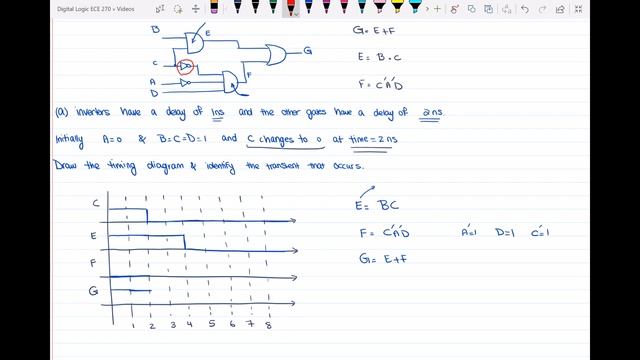 Digital Logic ECE 270 » Videos
B
E
G
C
F
A
D
G = E+F
E = B·C
F = C'A'D
(a) inverters have a delay of 1ns and the other gates have a delay of 2ns.
Initially A=0 & B=C=D=1 and C changes to 0 at time = 2ns
Draw the timing diagram & identify the transient that occurs.
C
E
F
G
1 2 3 4 5 6 7 8
E = BC
F = C'A'D A'=1 D=1 C'=1
G = E+F